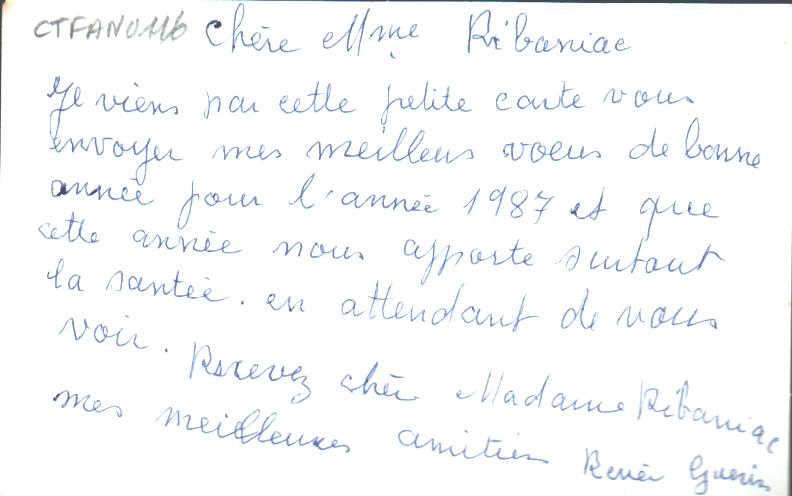 CTFAN0116 Chère Mme Ribaniac
Je viens par cette petite carte vous
envoyer mes meilleurs voeus de bonne
année pour l'année 1987 et que
cette année nous apporte surtout
la santée. en attendant de vous
voir. Recevez chère Madame Ribaniac
mes meilleures amitiés Renée Guerin